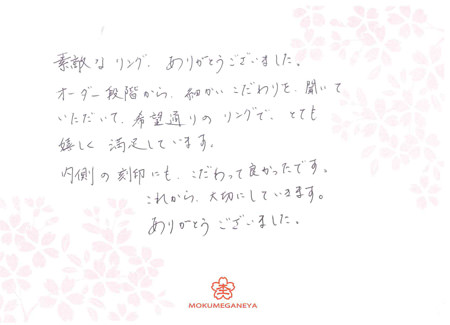 素敵なリング、ありがとうございました。
オーダー段階から、細かいこだわりを、聞いて
いただいて、希望通りのリングで、とても
嬉しく 満足しています。
内側の刻印にも、こだわって良かったです。
これから、大切にしていきます。
ありがとうございました。
MOKUMEGANEYA